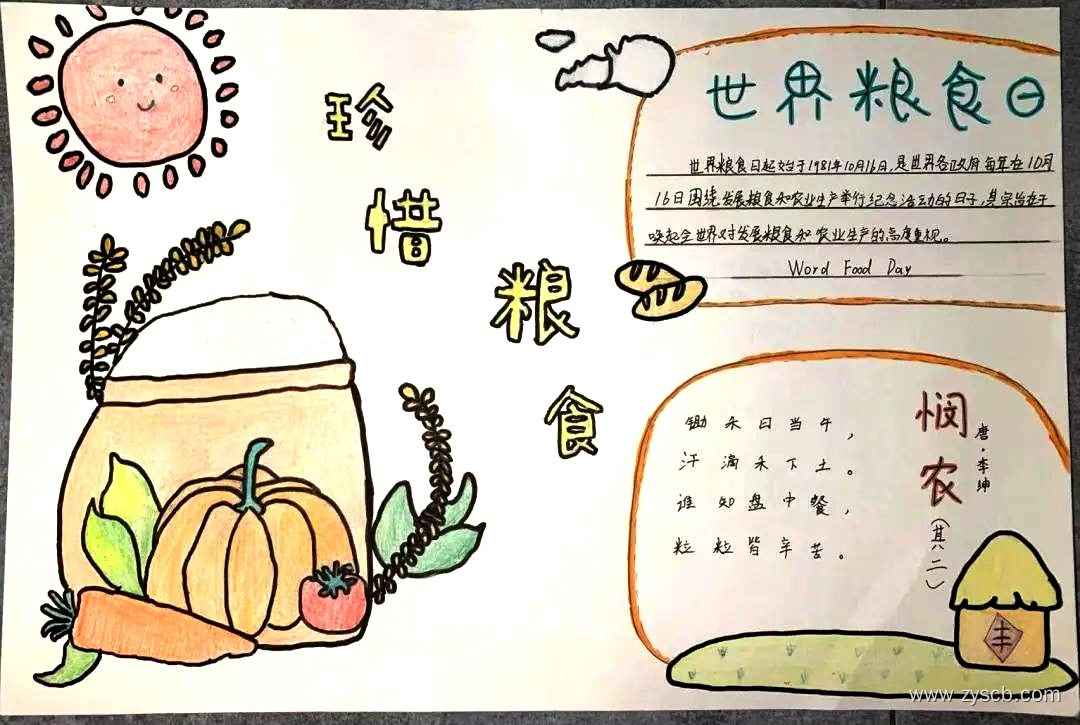 珍惜粮食
世界粮食日
世界粮食日起始于1981年10月16日,是世界各政府每年在10月
16日围绕发展粮食和农业生产举行纪念活动的日子,其宗旨在于
唤起全世界对发展粮食和农业生产的高度重视。
Word Food Day
悯农
(其二)
唐·李绅
锄禾日当午,
汗滴禾下土。
谁知盘中餐,
粒粒皆辛苦。
丰
www.zyscb.com